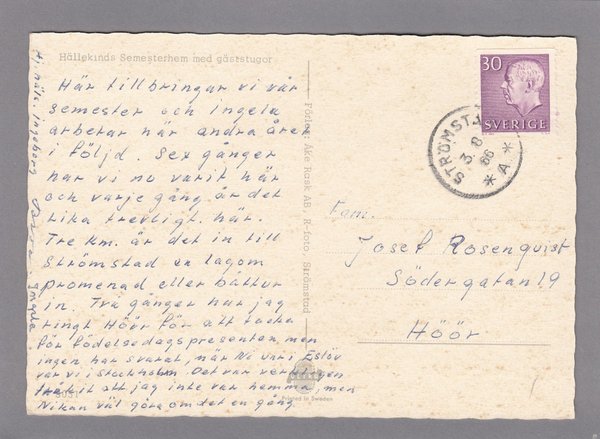 Hällekinds Semesterhem med gäststugor
Här tillbringar vi vår
semester och ingela
arbetar här andra året
i följd. Sex gånger
har vi nu varit här
och varje gång är det
lika trevligt här.
Tre km. är det in till
Strömstad en lagom
promenad eller båttur
in. Två gånger har jag
ringt Höör för att tacka
för födelsedagspresenten, men
ingen har svarat, när Ni var i Eslöv
var vi i Stockholm. Det var verkligen
tråkigt att jag inte var hemma, men
Ni kan väl göra om det en gång.
Hj. häls. Ingeborg
Ingela
Förlag: Åke Rask AB, R-foto Strömstad
30
SVERIGE
STRÖMSTAD
3 8
66
* A *
Fam.
Josef Rosenquist
Södergatan 19
Höör
Printed in Sweden